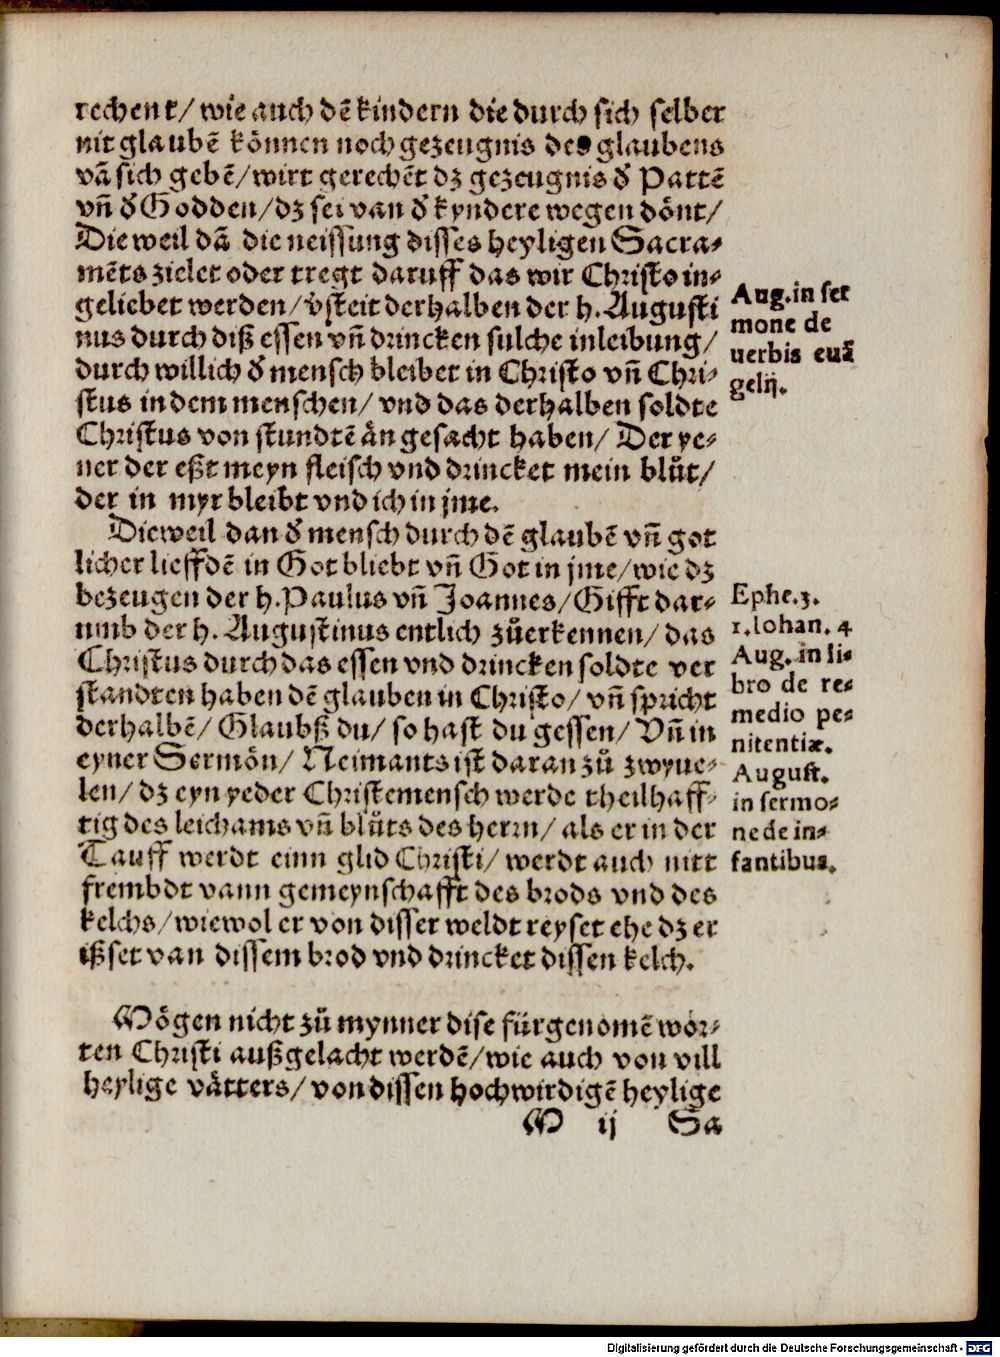 rechent/ wie auch dē kindern die durch sich selber
nit glaubē können noch gezeugnis des glaubens
vā sich gebē/ wirt gerechēt dz gezeugnis d̕ Pattē
vn̄ d̕ Godden/ dz sei van d̕ kyndere wegen dönt/
Die weil dā die neissung disses heyligen Sacra-
mēts zielet oder tregt daruff das wir Christo in-
geliebet werden/ v̕steit derhalben der h. Augusti
nus durch diß essen vn̄ drincken sulche inleibung/
durch willich d̕ mensch bleibet in Christo vn̄ Chri-
stus in dem menschen/ vnd das derhalben soldte
Christus von stundtē ån gesacht haben/ Der ye-
ner der eßt meyn fleisch vnd drincket mein blůt/
der in myr bleibt vnd ich in jme.
Aug. in ser
mone de
uerbis euā
gelij.
Dieweil dan d̕ mensch durch dē glaubē vn̄ got
licher lieffdē in Got bliebt vn̄ Got in jme/ wie dz
bezeugen der h. Paulus vn̄ Joannes/ Gifft dar-
umb der h. Augustinus entlich zůerkennen/ das
Christus durch das essen vnd drincken soldte ver
standten haben dē glauben in Christo/ vn̄ spricht
derhalbē/ Glaubß du/ so hast du gessen/ Vn̄ in
eyner Sermön/ Neimants ist daran zů zwyue-
len/ dz eyn yeder Christemensch werde theilhaff-
tig des leichams vn̄ blůts des herrn/ als er in der
Tauff werdt einn glid Christi/ werdt auch nitt
frembdt vann gemeynschafft des brods vnd des
kelchs/ wiewol er von disser weldt reyset ehe dz er
ißset van dissem brod vnd drincket dissen kelch.
Ephe. 3.
1. Iohan. 4
Aug. in li-
bro de re-
medio pe-
nitentiæ.
August.
in sermo-
ne de in-
fantibus.
Mögen nicht zů mynner dise fürgenomē wor-
ten Christi außgelacht werdē/ wie auch von vill
heylige våtters/ von dissen hochwirdigē heylige
M ij Sa
Digitalisierung gefördert durch die Deutsche Forschungsgemeinschaft - DFG